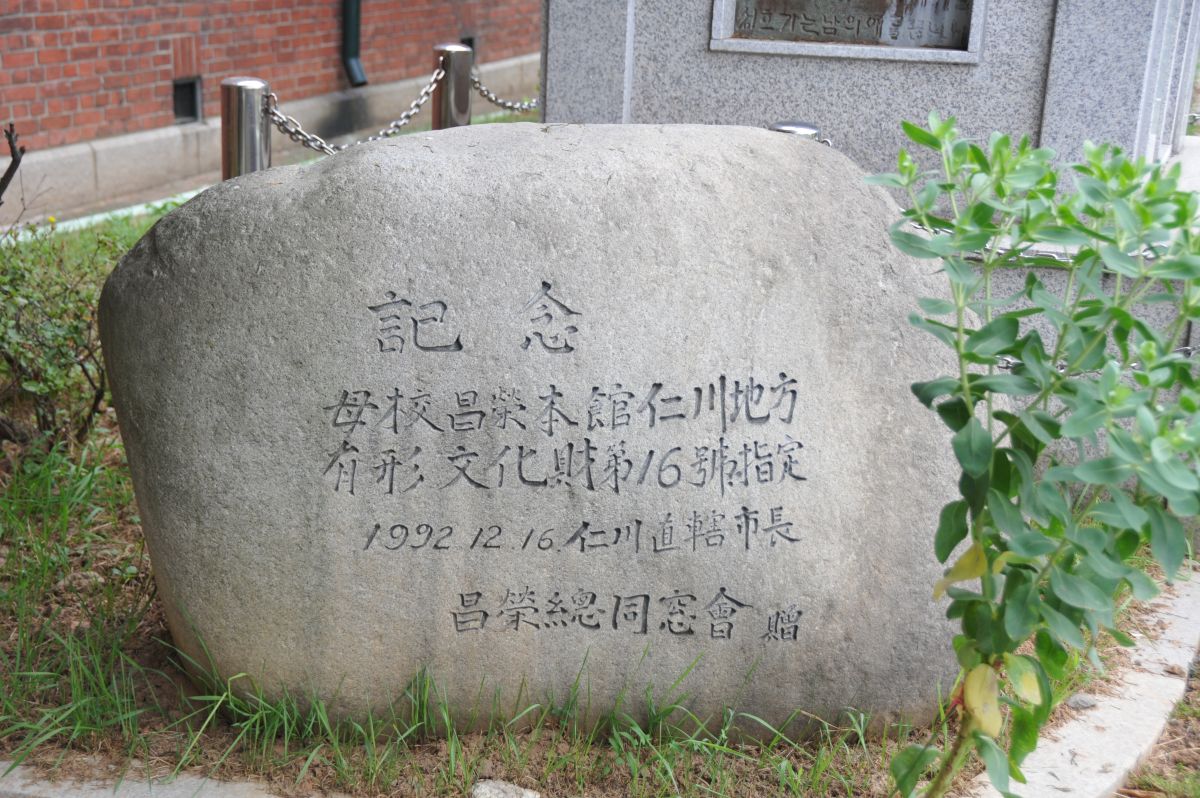 심프가는남의애
記念
母校昌榮本館仁川地方
有形文化財第16號指定
1992.12.16.仁川直轄市長
昌榮總同窓會 贈